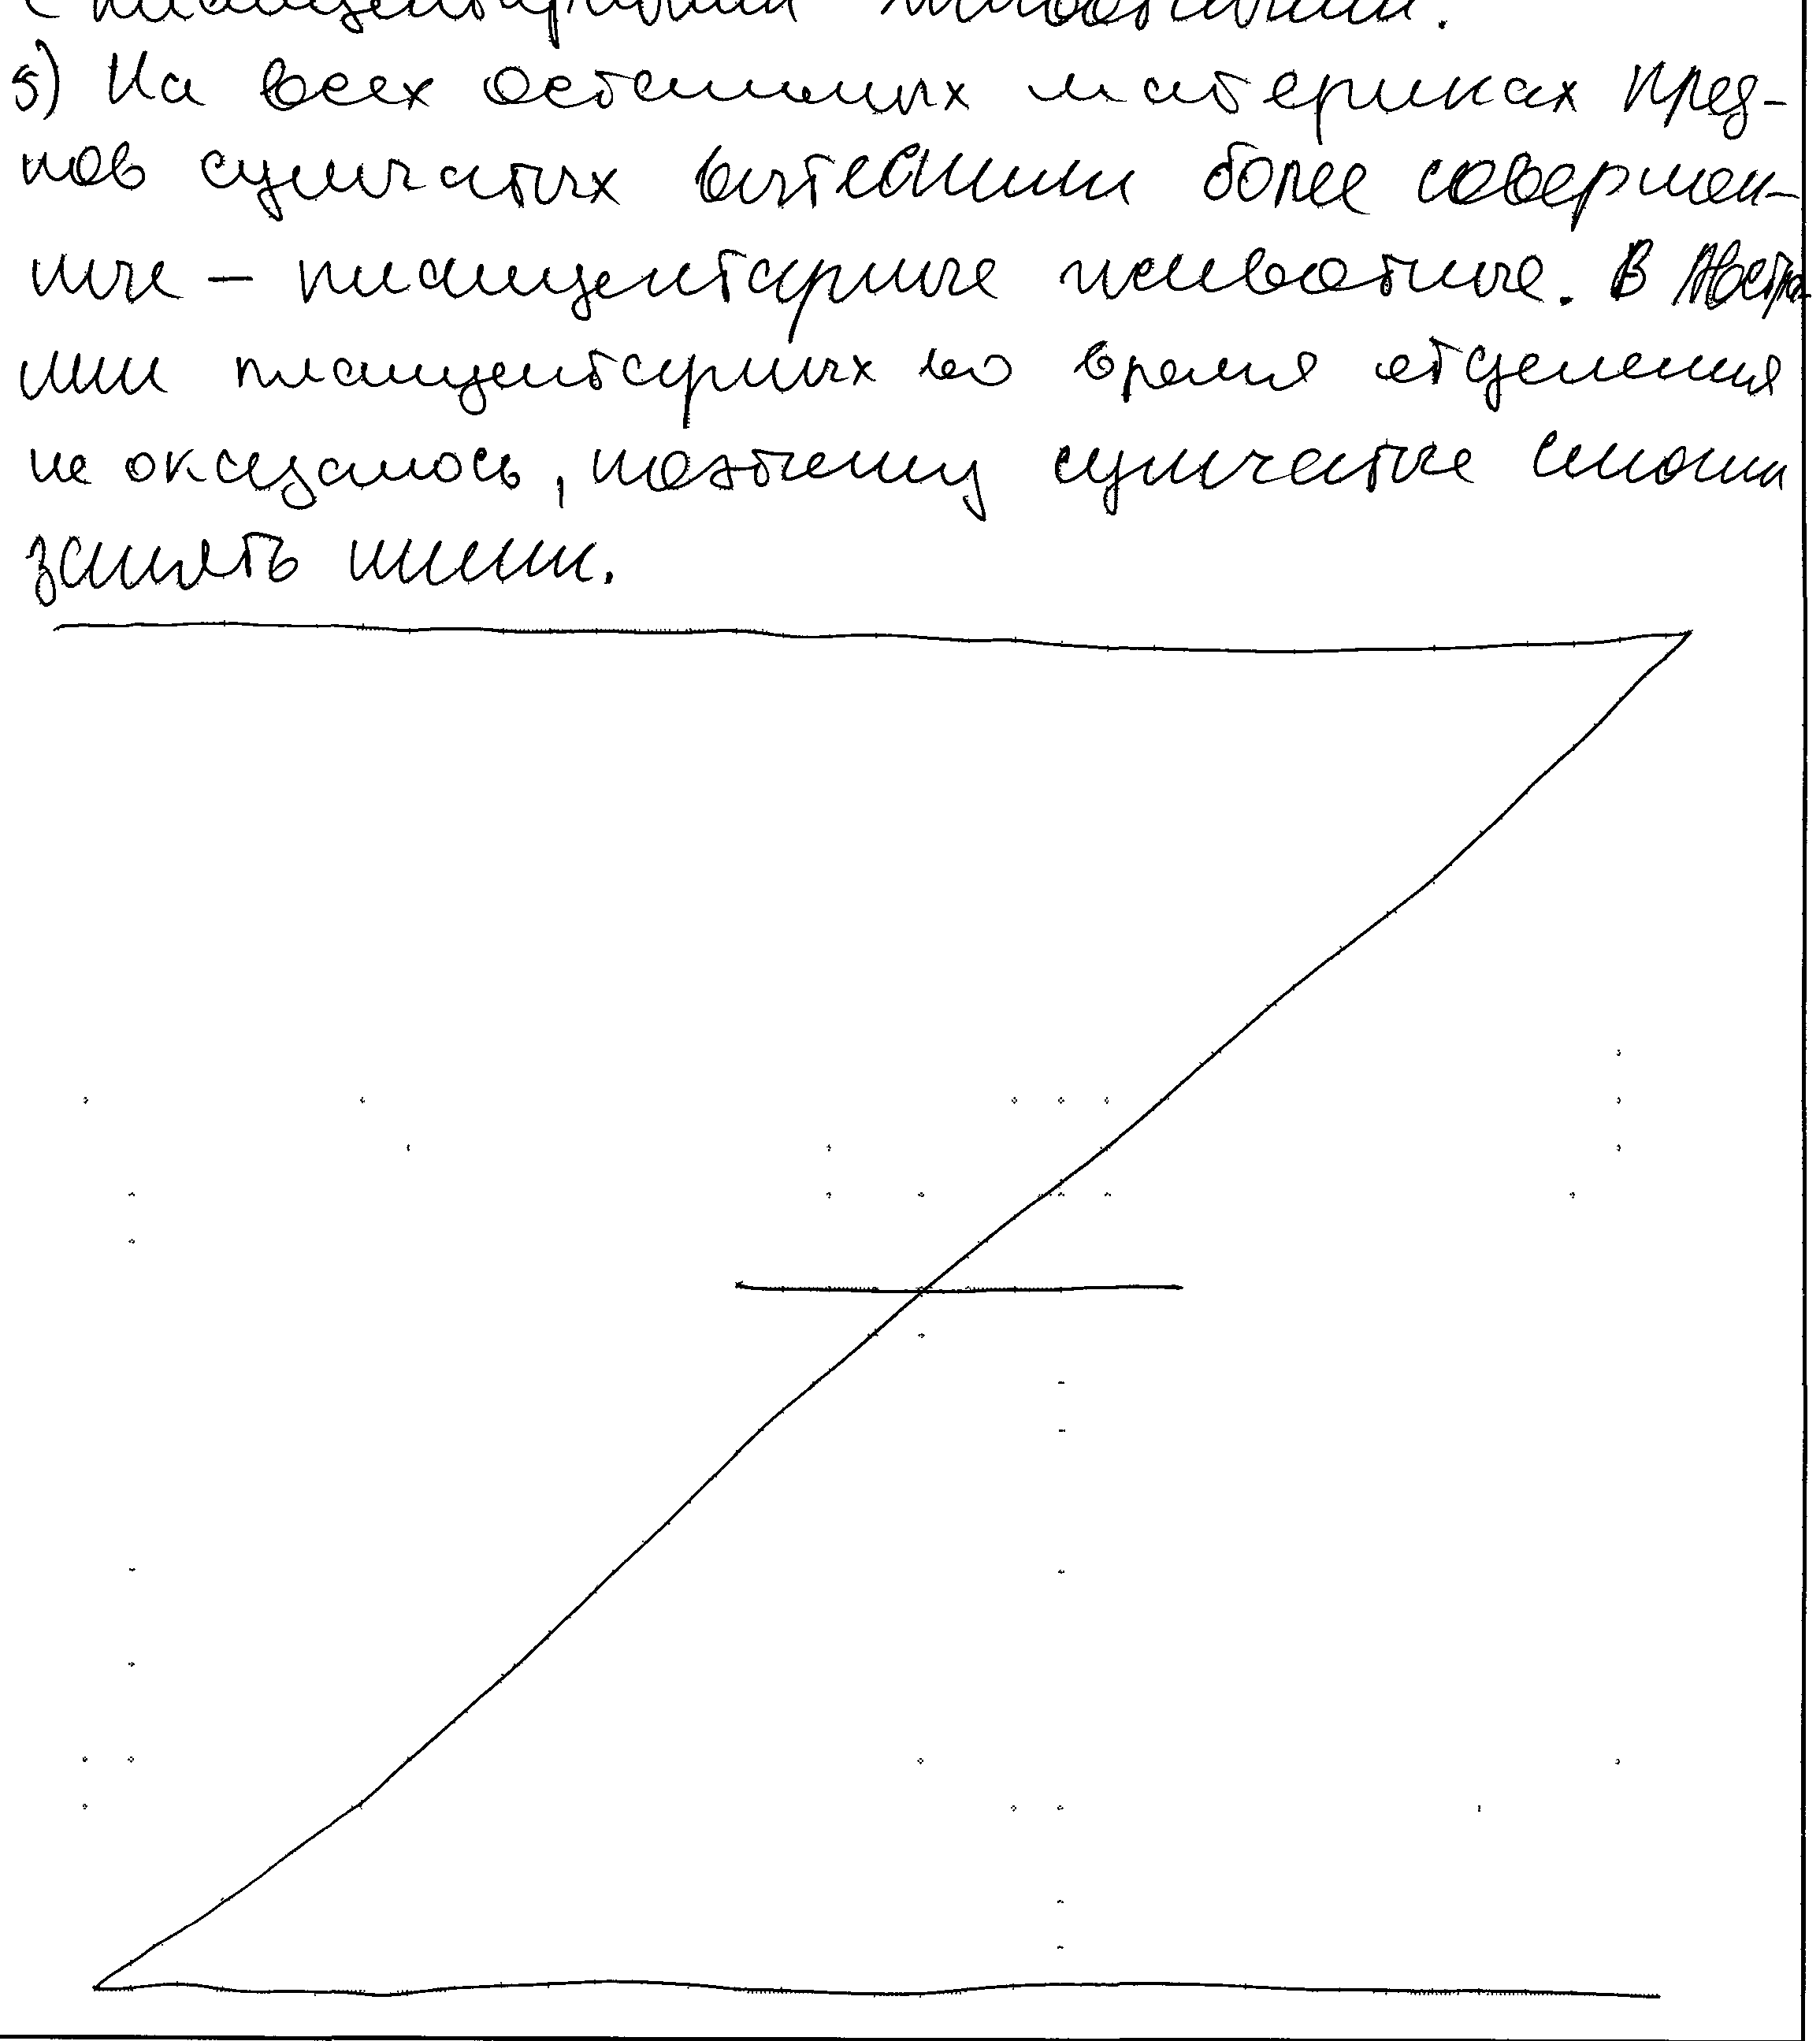 (плацентарными животными.
5) На всех остальных материках пред-
ков сумчатых вытеснили более совершен-
ные – плацентарные животные. В Австра-
лии плацентарных во время отделения
не оказалось, поэтому сумчатые смогли
занять ниши.